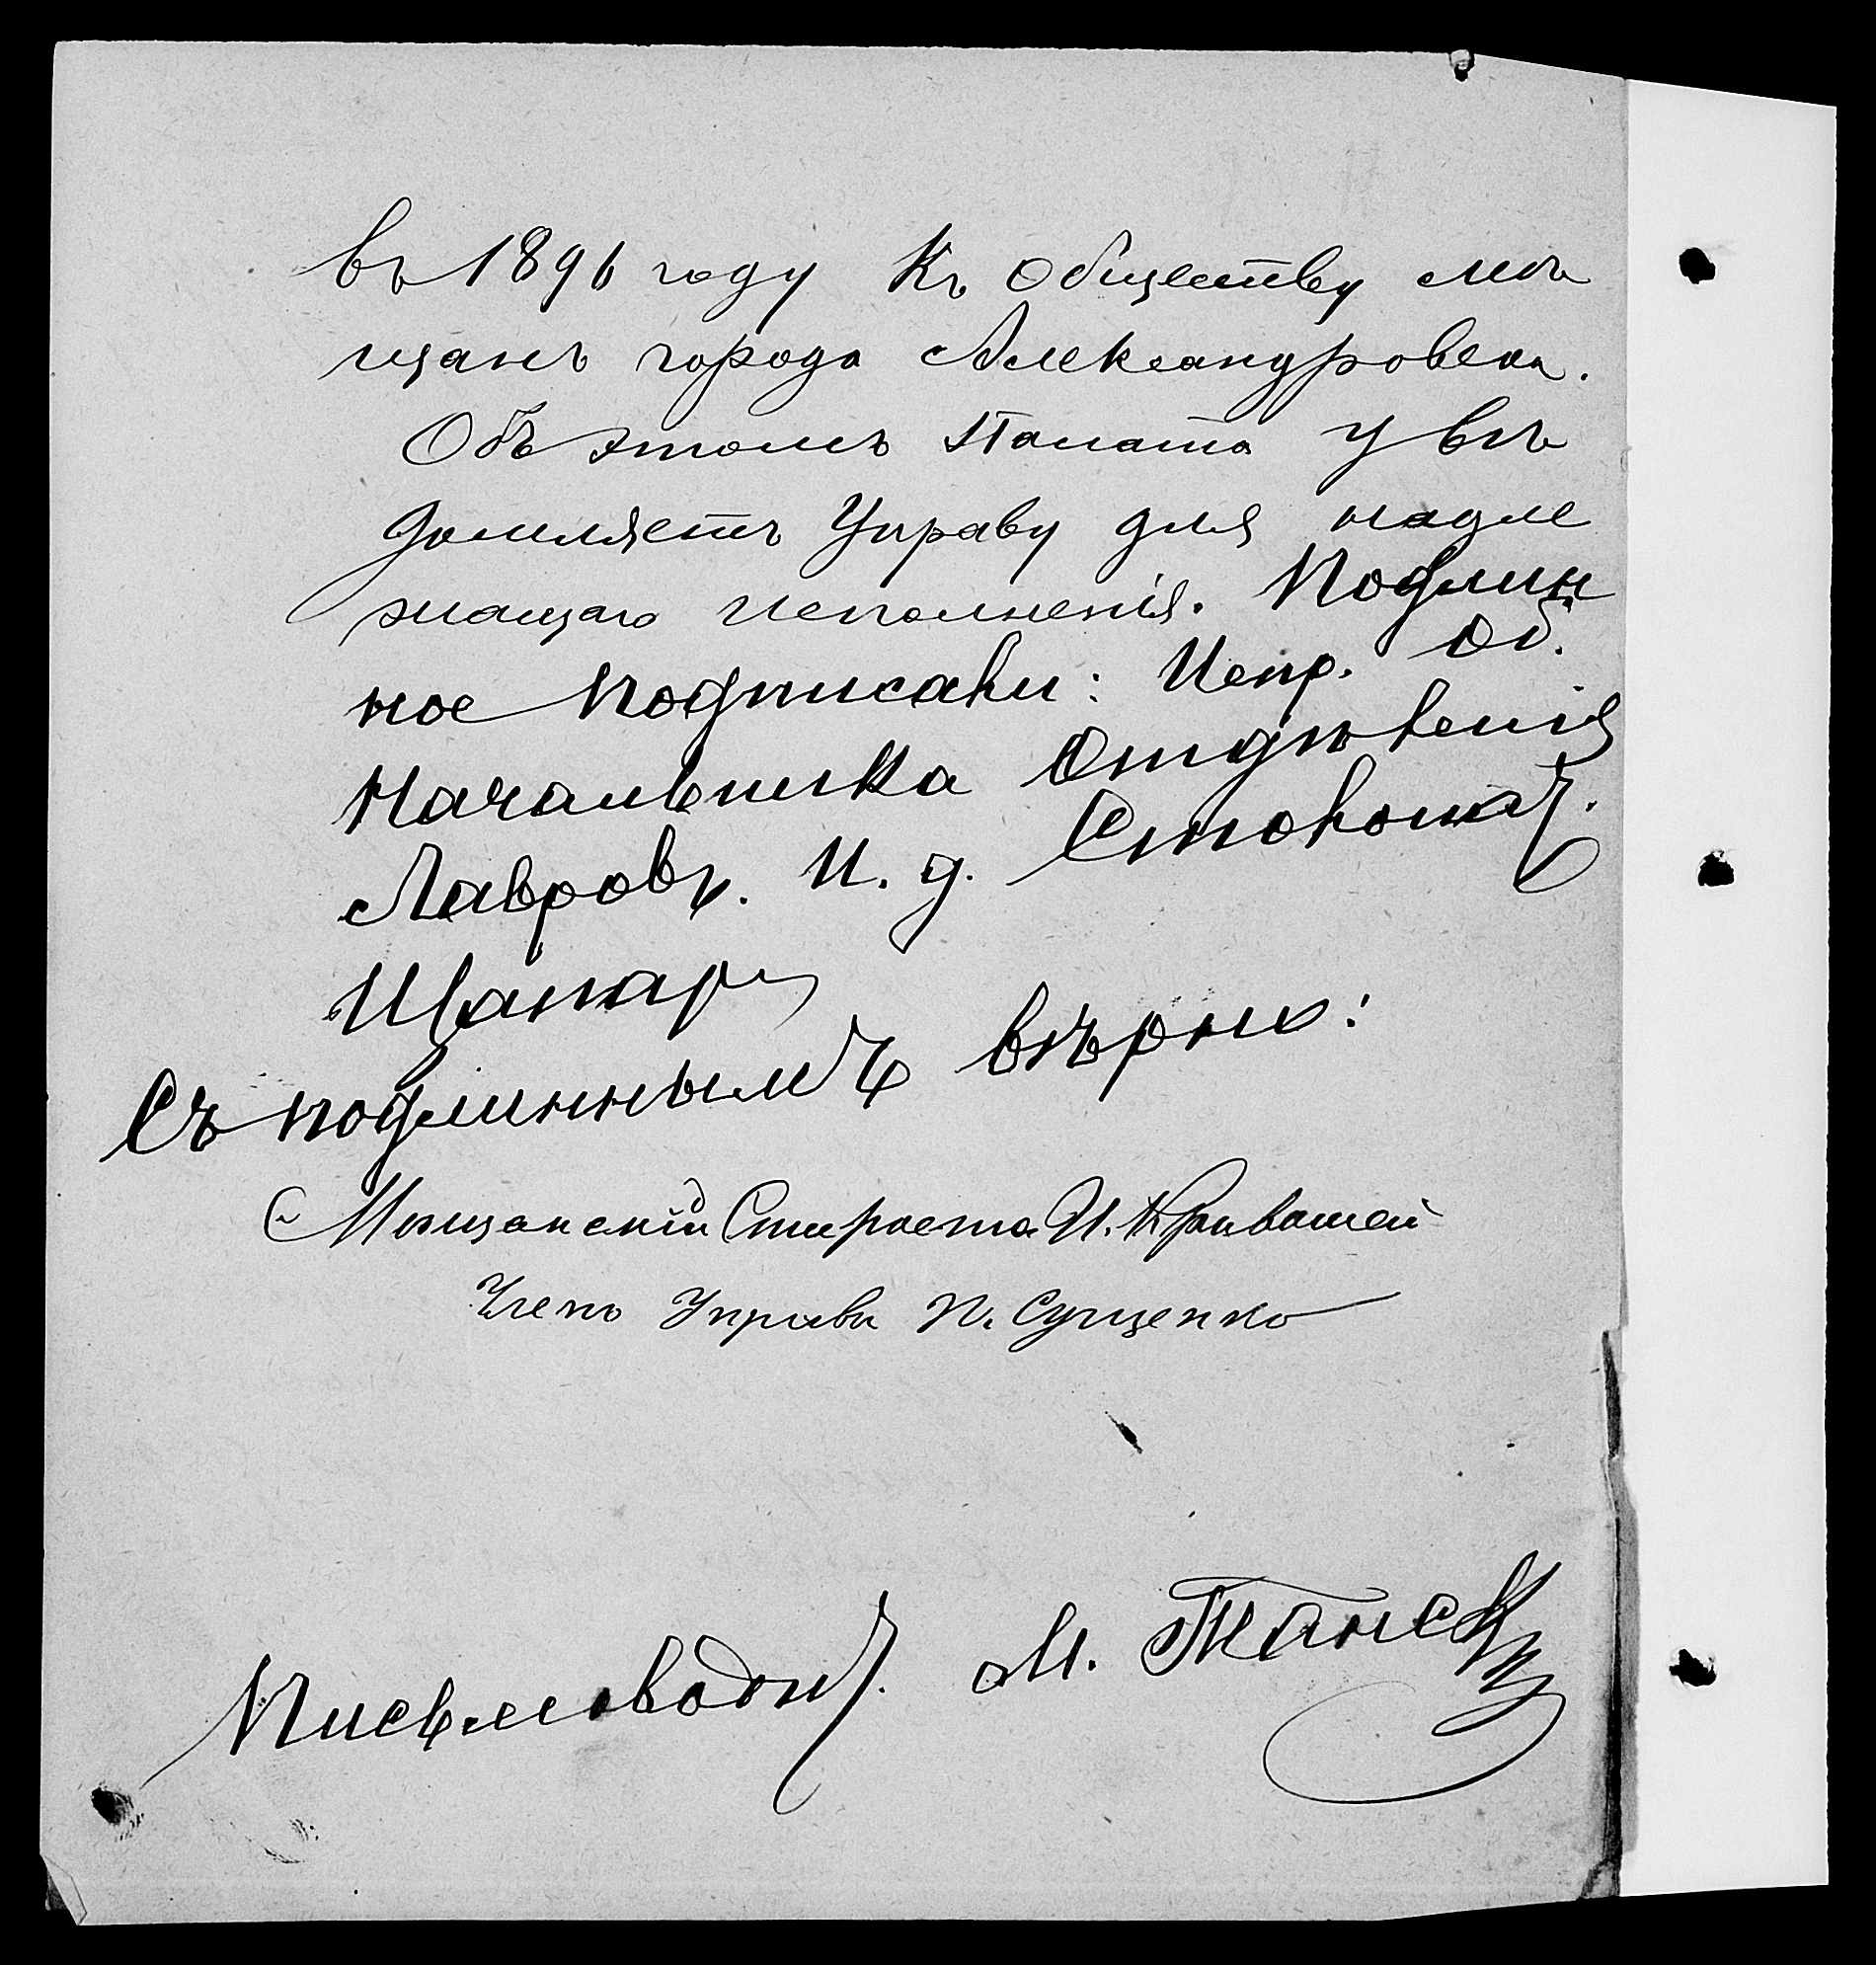 въ 1896 году Къ обществу мѣ
щанъ города Александровска.
Объ этомъ Палата увѣ
домляетъ Управу для надле
жащаго исполненія. Подлин
ное подписали: Испр. об.
Начальника Отдѣленія
Лавровъ. И. д. Столонач.
Съ подлиннымъ вѣрно:
Мѣщанскій Староста И.
Членъ Управы П. Сущенко
Письмоводит. М.